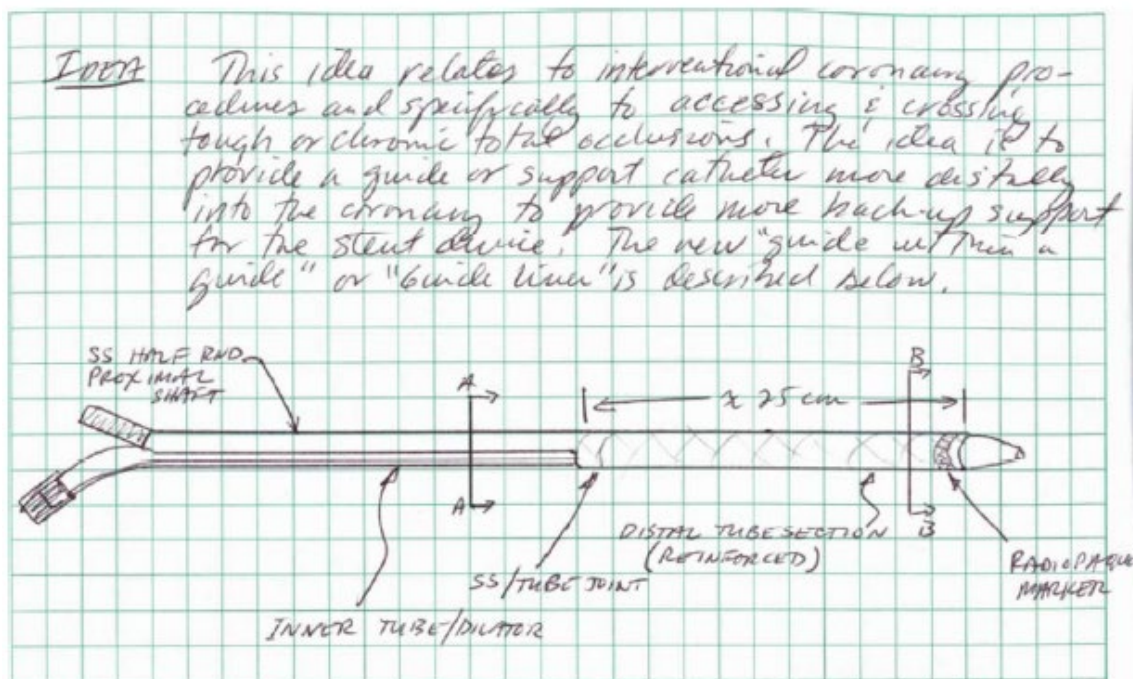 IDEA This idea relates to interventional coronary pro-
cedures and specifically to accessing & crossing
tough or chronic total occlusions. The idea is to
provide a guide or support catheter more distally
into the coronary to provide more back-up support
for the stent device. The new "guide within a
guide" or "Guide liner" is described below.
SS HALF RND.
PROXIMAL
SHAFT
A
B
≈ 25 cm
A
B
DISTAL TUBE SECTION
(REINFORCED)
RADIOPAQUE
MARKER
SS/TUBE JOINT
INNER TUBE/DILATOR